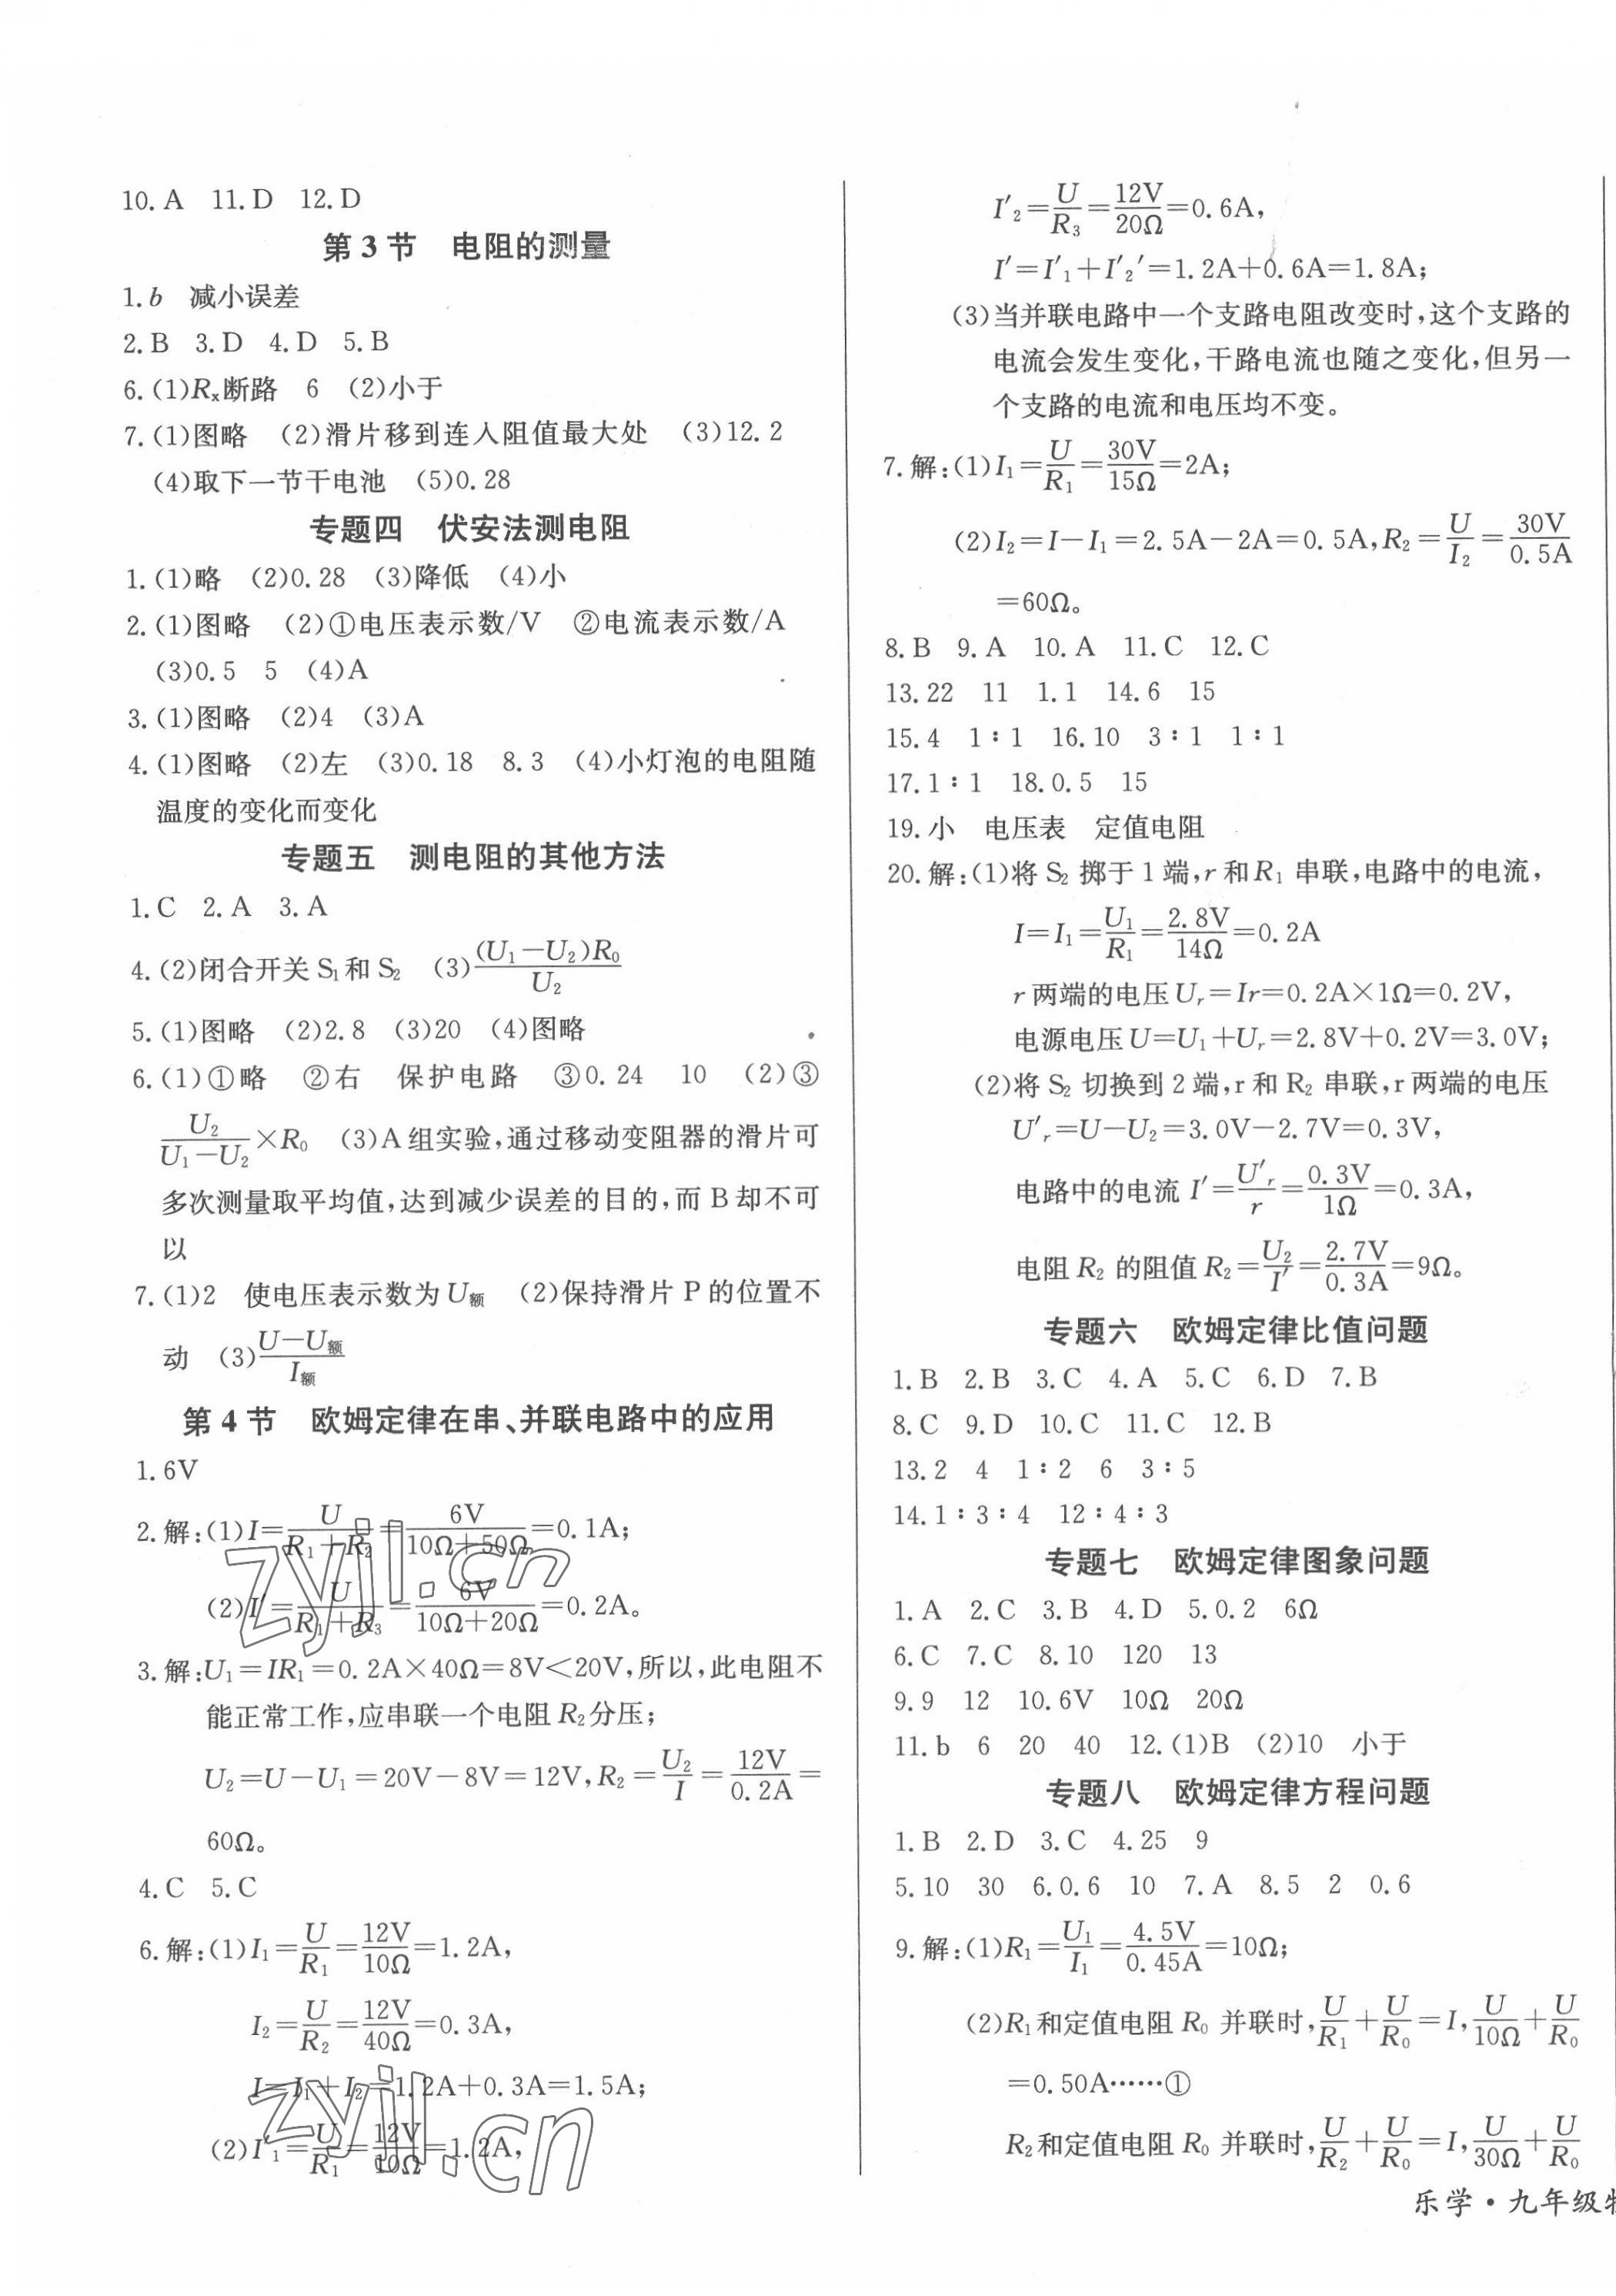 10.A 11.D 12.D
第3节 电阻的测量
1.b 减小误差
2.B 3.D 4.D 5.B
6.(1)Rₓ断路 6 (2)小于
7.(1)图略 (2)滑片移到连入阻值最大处 (3)12.2
(4)取下一节干电池 (5)0.28
专题四 伏安法测电阻
1.(1)略 (2)0.28 (3)降低 (4)小
2.(1)图略 (2)①电压表示数/V ②电流表示数/A
(3)0.5 5 (4)A
3.(1)图略 (2)4 (3)A
4.(1)图略 (2)左 (3)0.18 8.3 (4)小灯泡的电阻随
温度的变化而变化
专题五 测电阻的其他方法
1.C 2.A 3.A
4.(2)闭合开关S₁和S₂ (3)(U₁-U₂)R₀/U₂
5.(1)图略 (2)2.8 (3)20 (4)图略
6.(1)①略 ②右 保护电路 ③0.24 10 (2)③
U₂/(U₁-U₂)×R₀ (3)A组实验,通过移动变阻器的滑片可
多次测量取平均值,达到减少误差的目的,而B却不可
以
7.(1)2 使电压表示数为U额 (2)保持滑片P的位置不
动 (3)(U-U额)/I额
第4节 欧姆定律在串、并联电路中的应用
1.6V
2.解:(1)I=U/(R₁+R₂)=6V/(10Ω+50Ω)=0.1A;
(2)I′=U/(R₁+R₃)=6V/(10Ω+20Ω)=0.2A。
3.解:U₁=IR₁=0.2A×40Ω=8V<20V,所以,此电阻不
能正常工作,应串联一个电阻R₂分压;
U₂=U-U₁=20V-8V=12V,R₂=U₂/I=12V/0.2A=
60Ω。
4.C 5.C
6.解:(1)I₁=U/R₁=12V/10Ω=1.2A,
I₂=U/R₂=12V/40Ω=0.3A,
I=I₁+I₂=1.2A+0.3A=1.5A;
(2)I′₁=U/R₁=12V/10Ω=1.2A,
zyjl.cn
zyjl.cn
I′₂=U/R₃=12V/20Ω=0.6A,
I′=I′₁+I′₂′=1.2A+0.6A=1.8A;
(3)当并联电路中一个支路电阻改变时,这个支路的
电流会发生变化,干路电流也随之变化,但另一
个支路的电流和电压均不变。
7.解:(1)I₁=U/R₁=30V/15Ω=2A;
(2)I₂=I-I₁=2.5A-2A=0.5A,R₂=U/I₂=30V/0.5A
=60Ω。
8.B 9.A 10.A 11.C 12.C
13.22 11 1.1 14.6 15
15.4 1∶1 16.10 3∶1 1∶1
17.1∶1 18.0.5 15
19.小 电压表 定值电阻
20.解:(1)将S₂掷于1端,r和R₁串联,电路中的电流,
I=I₁=U₁/R₁=2.8V/14Ω=0.2A
r两端的电压Uᵣ=Ir=0.2A×1Ω=0.2V,
电源电压U=U₁+Uᵣ=2.8V+0.2V=3.0V;
(2)将S₂切换到2端,r和R₂串联,r两端的电压
U′ᵣ=U-U₂=3.0V-2.7V=0.3V,
电路中的电流I′=U′ᵣ/r=0.3V/1Ω=0.3A,
电阻R₂的阻值R₂=U₂/I′=2.7V/0.3A=9Ω。
专题六 欧姆定律比值问题
1.B 2.B 3.C 4.A 5.C 6.D 7.B
8.C 9.D 10.C 11.C 12.B
13.2 4 1∶2 6 3∶5
14.1∶3∶4 12∶4∶3
专题七 欧姆定律图象问题
1.A 2.C 3.B 4.D 5.0.2 6Ω
6.C 7.C 8.10 120 13
9.9 12 10.6V 10Ω 20Ω
11.b 6 20 40 12.(1)B (2)10 小于
专题八 欧姆定律方程问题
1.B 2.D 3.C 4.25 9
5.10 30 6.0.6 10 7.A 8.5 2 0.6
9.解:(1)R₁=U₁/I₁=4.5V/0.45A=10Ω;
(2)R₁和定值电阻R₀并联时,U/R₁+U/R₀=I,U/10Ω+U/R₀
=0.50A……①
R₂和定值电阻R₀并联时,U/R₂+U/R₀=I,U/30Ω+U/R₀
乐学·九年级